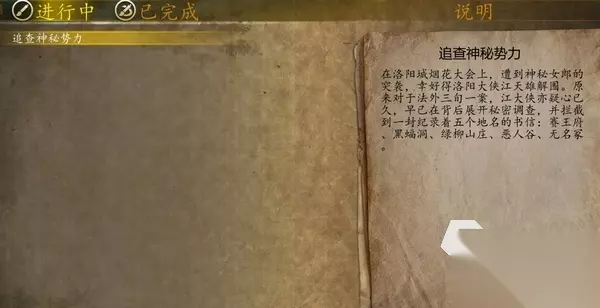 进行中 已完成 说明
追查神秘势力
追查神秘势力
在洛阳城烟花大会上，遭到神秘女郎的
突袭，幸好得洛阳大侠江天雄解围。原
来对于法外三旬一案，江大侠亦疑心已
久，早已在背后展开秘密调查，并拦截
到一封纪录着五个地名的书信：赛王府
、黑蝠洞、绿柳山庄、恶人谷、无名冢
。